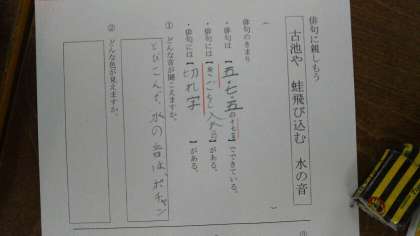 俳句に親しもう
古池や 蛙飛び込む 水の音
俳句のきまり
・俳句は【五・七・五の十七音】でできている。
・俳句には【きごをーつ入れる】がある。
・俳句には【切れ字】がある。
① どんな音が聞こえますか。
とびこんで、水の音は、ポチャン
② どんな色が見えますか。